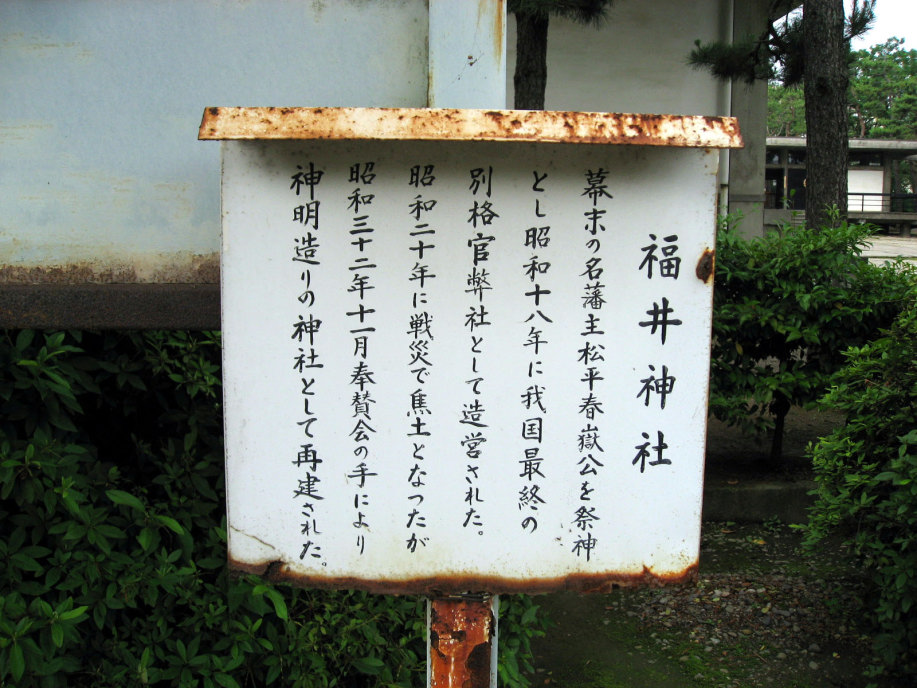 福井神社
幕末の名藩主松平春嶽公を祭神
とし昭和十八年に我国最終の
別格官弊社として造営された。
昭和二十年に戦災で焦土となつたが
昭和三十二年十一月奉賛会の手により
神明造りの神社として再建された。